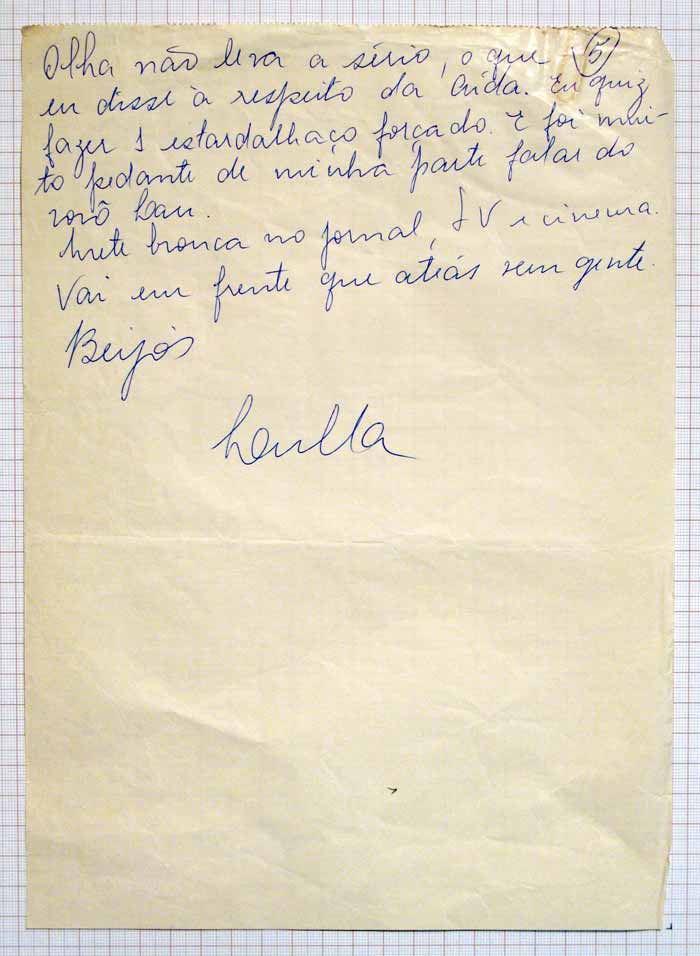 Olha não leva a sério, o que (5)
eu disse à respeito da Aída. Eu quiz
fazer 1 estardalhaço forçado. E foi mui-
to pedante de minha parte falar do
vovô Lau.
Mete bronca no jornal, TV e cinema.
Vai em frente que atrás vem gente.
Beijos